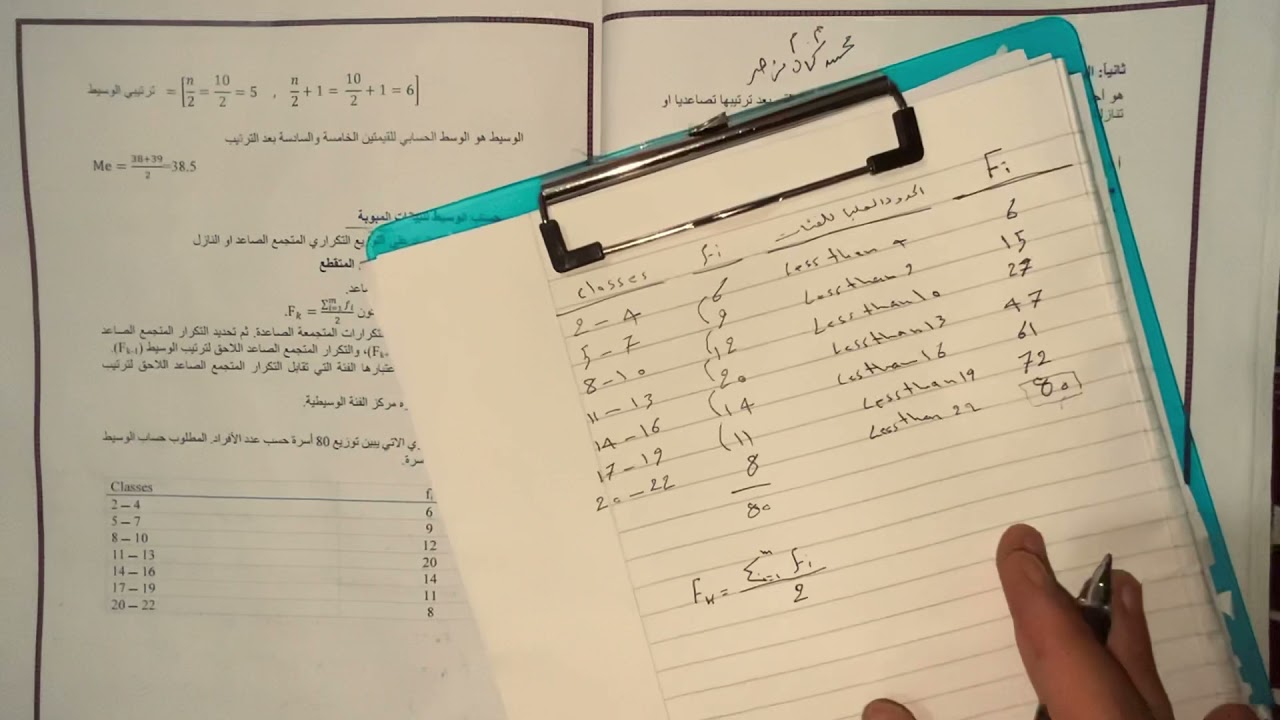 ترتيبي الوسيط = [n/2 = 10/2 = 5 , n/2 + 1 = 10/2 + 1 = 6]
الوسيط هو الوسط الحسابي للقيمتين الخامسة والسادسة بعد الترتيب
Me = 38+39/2 =38.5
حساب الوسيط للبيانات المبوبة
التكراري المتجمع الصاعد او النازل
المتقطع
F_k = ∑_{i=1}^{m} f_i / 2
التكرارات المتجمعة الصاعدة. ثم تحديد التكرار المتجمع الصاعد
، والتكرار المتجمع الصاعد اللاحق لترتيب الوسيط (F_{k-1}).
الفئة التي تقابل التكرار المتجمع الصاعد اللاحق لترتيب
مركز الفئة الوسيطية.
الاتي يبين توزيع 80 أسرة حسب عدد الأفراد. المطلوب حساب الوسيط
Classes f
2 – 4 6
5 – 7 9
8 – 10 12
11 – 13 20
14 – 16 14
17 – 19 11
20 – 22 8
ثانياً:
بعد ترتيبها تصاعديا او
محمد
classes fi الحدود العليا للفئات Fi
2 - 4 6 Less than 4 6
5 - 7 9 Less than 7 15
8 - 10 12 Less than 10 27
11 - 13 20 Less than 13 47
14 - 16 14 Less than 16 61
17 - 19 11 Less than 19 72
20 - 22 8 Less than 22 80
80
F_k = ∑_{i=1}^{m} f_i / 2